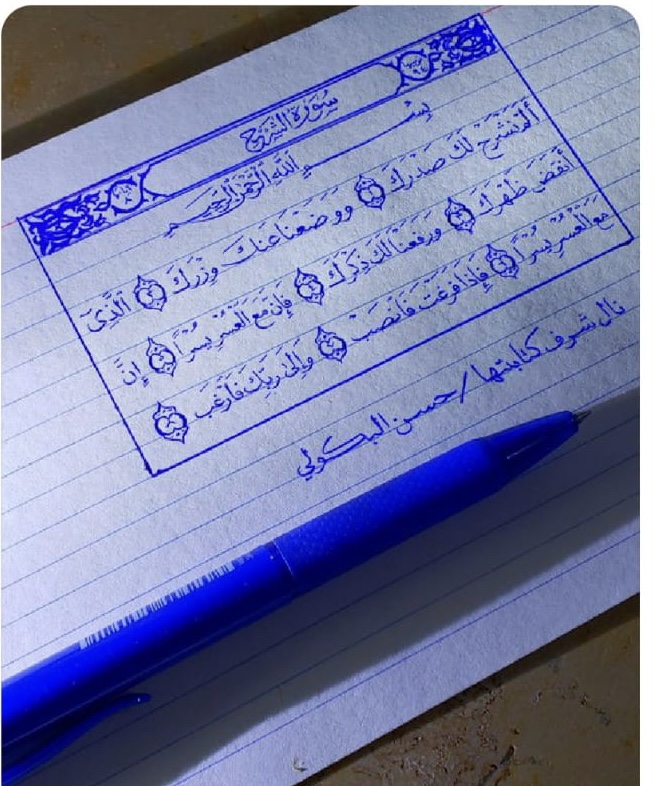 سُورَةُ الشَّرْحِ
بِسْمِ اللَّهِ الرَّحْمَٰنِ الرَّحِيمِ
أَلَمْ نَشْرَحْ لَكَ صَدْرَكَ ١ وَوَضَعْنَا عَنكَ وِزْرَكَ ٢ الَّذِي
أَنقَضَ ظَهْرَكَ ٣ وَرَفَعْنَا لَكَ ذِكْرَكَ ٤ فَإِنَّ مَعَ الْعُسْرِ يُسْرًا ٥ إِنَّ
مَعَ الْعُسْرِ يُسْرًا ٦ فَإِذَا فَرَغْتَ فَانصَبْ ٧ وَإِلَىٰ رَبِّكَ فَارْغَب ٨
نال شرف كتابتها / حسن البكولي